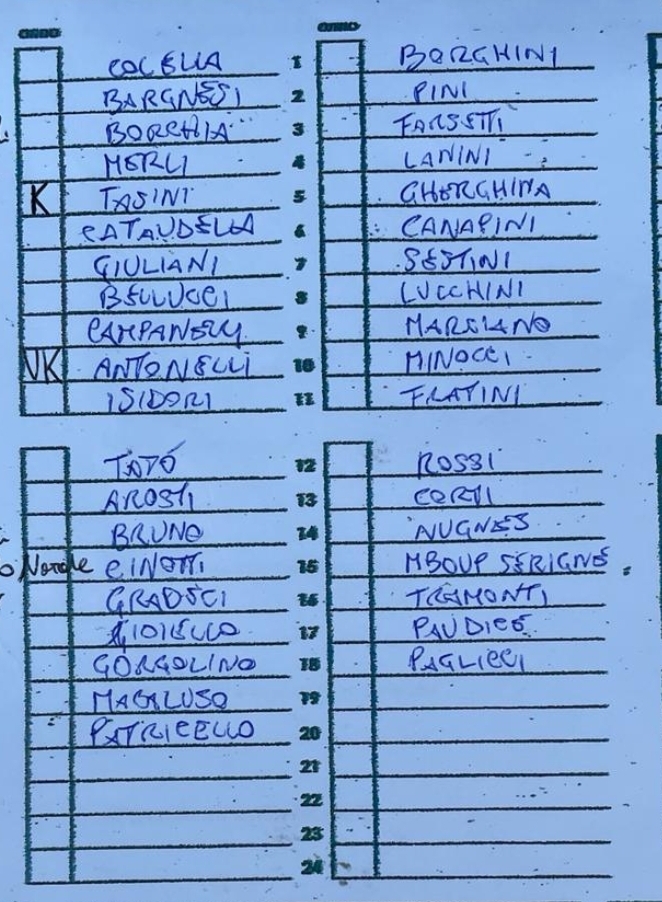 COLELLA 1 BORGHINI
BARGNESI 2 PINI
BORCHIA 3 FARSETTI
MERLI 4 LANINI
K TASINI 5 GHERGHINA
CATAUDELLA 6 CANAPINI
GIULIANI 7 SESTINI
BELLUCCI 8 LUCCHINI
CAMPANELLI 9 MARGIANO
VK ANTONELLI 10 MINOCCI
ISIDORI 11 FRATINI
TATÓ 12 ROSSI
AROSTI 13 CORTI
BRUNO 14 NUGNES
CINOTTI 15 MBOUP SERIGNE
GRADSCI 16 TRAMONTI
GIOIELLO 17 PAUDICE
GORGOLINO 18 PAGLICCI
MACALUSO 19
PATRICELLO 20
21
22
23
24